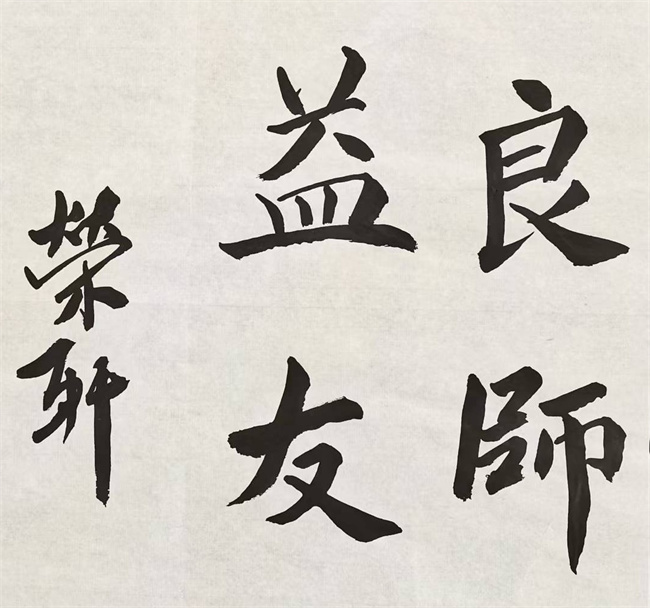 良師
益友
榮軒